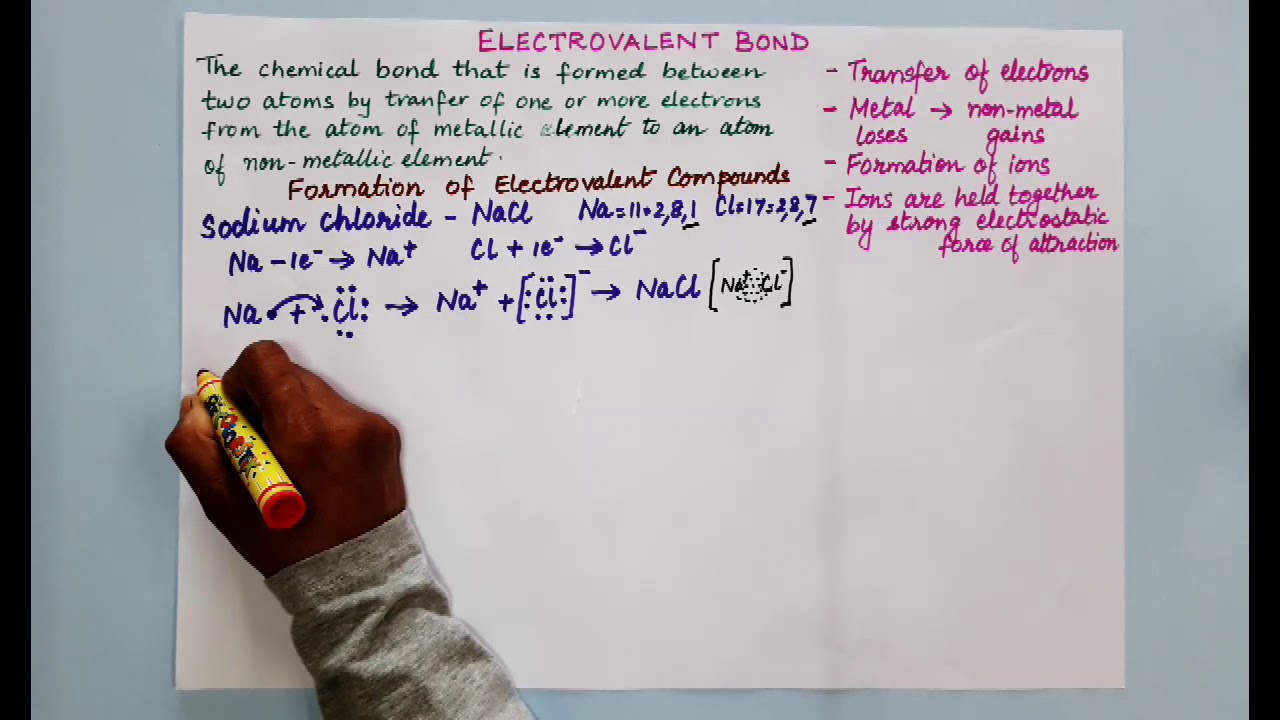 ELECTROVALENT BOND
The chemical bond that is formed between
two atoms by tranfer of one or more electrons
from the atom of metallic element to an atom
of non-metallic element.
- Transfer of electrons
- Metal → non-metal
loses gains
- Formation of ions
- Ions are held together
by strong electrostatic
force of attraction
Formation of Electrovalent Compounds
Sodium chloride - NaCl Na=11=2,8,1 Cl=17=2,8,7
Na - 1e⁻ → Na⁺ Cl + 1e⁻ → Cl⁻
Na + Cl → Na⁺ + [Cl]⁻ → NaCl [Na⁺ Cl⁻]